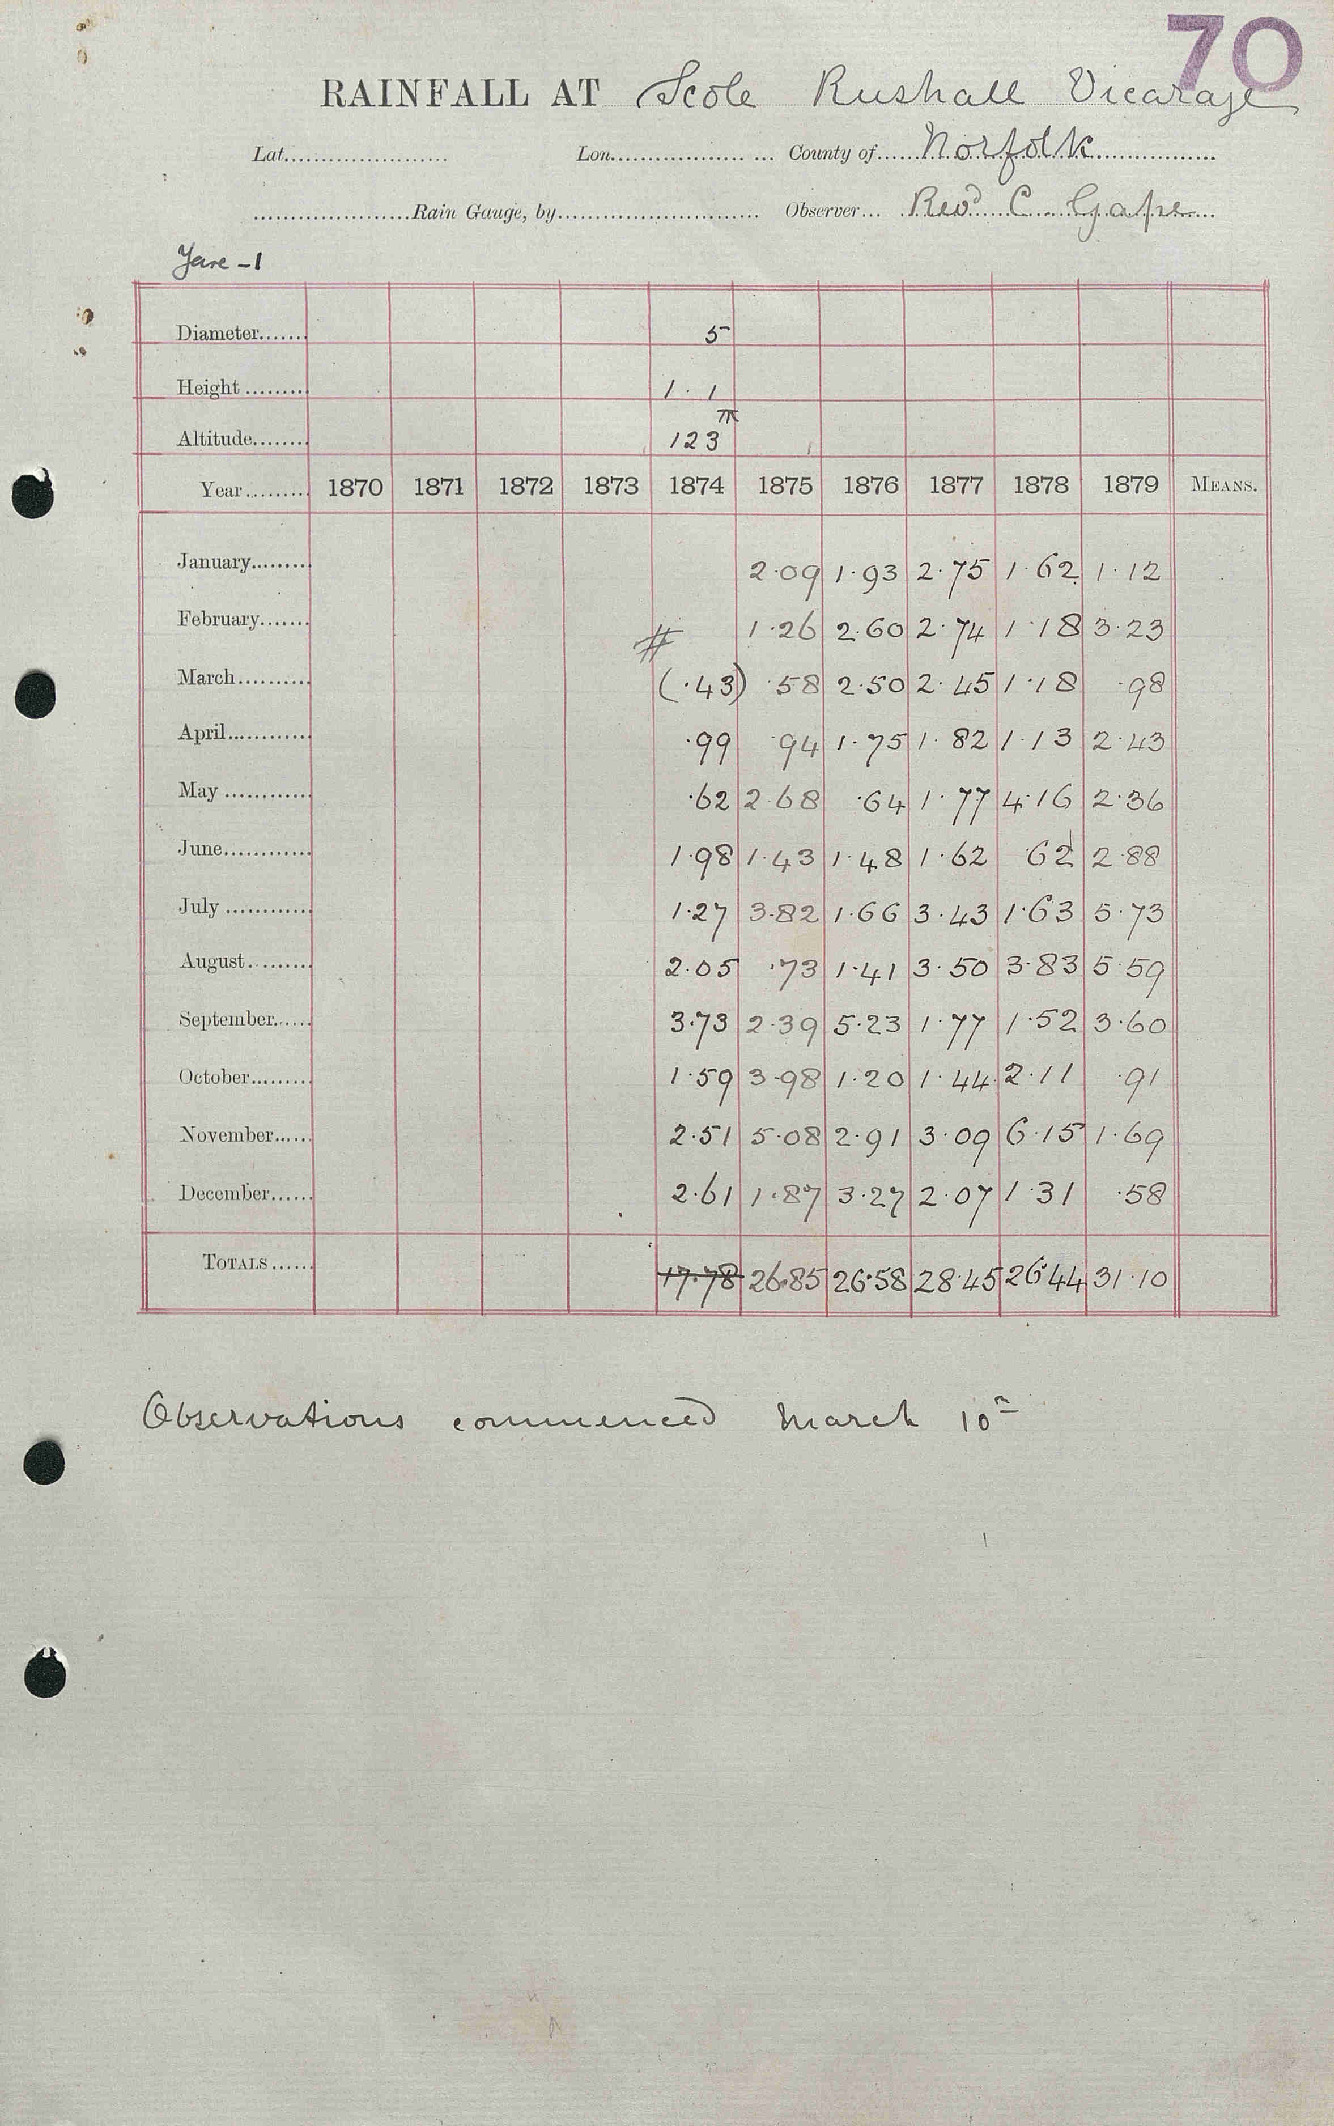 70
RAINFALL AT Scole Rushall Vicarage
Lat. Lon. County of Norfolk
Rain Gauge, by Observer Revd C. Gape
Yare - 1
Diameter 5
Height 1. 1
Altitude 123
Year 1870 1871 1872 1873 1874 1875 1876 1877 1878 1879 MEANS.
January 2.09 1.93 2.75 1.62 1.12
February 1.26 2.60 2.74 1.18 3.23
#
March (.43) .58 2.50 2.45 1.18 .98
April .99 .94 1.75 1.82 1.13 2.43
May .62 2.68 .64 1.77 4.16 2.36
June 1.98 1.43 1.48 1.62 .62 2.88
July 1.27 3.82 1.66 3.43 1.63 5.73
August 2.05 .73 1.41 3.50 3.83 5.59
September 3.73 2.39 5.23 1.77 1.52 3.60
October 1.59 3.98 1.20 1.44 2.11 .91
November 2.51 5.08 2.91 3.09 6.15 1.69
December 2.61 1.87 3.27 2.07 1.31 .58
TOTALS 17.78 26.85 26.58 28.45 26.44 31.10
Observations commenced March 10